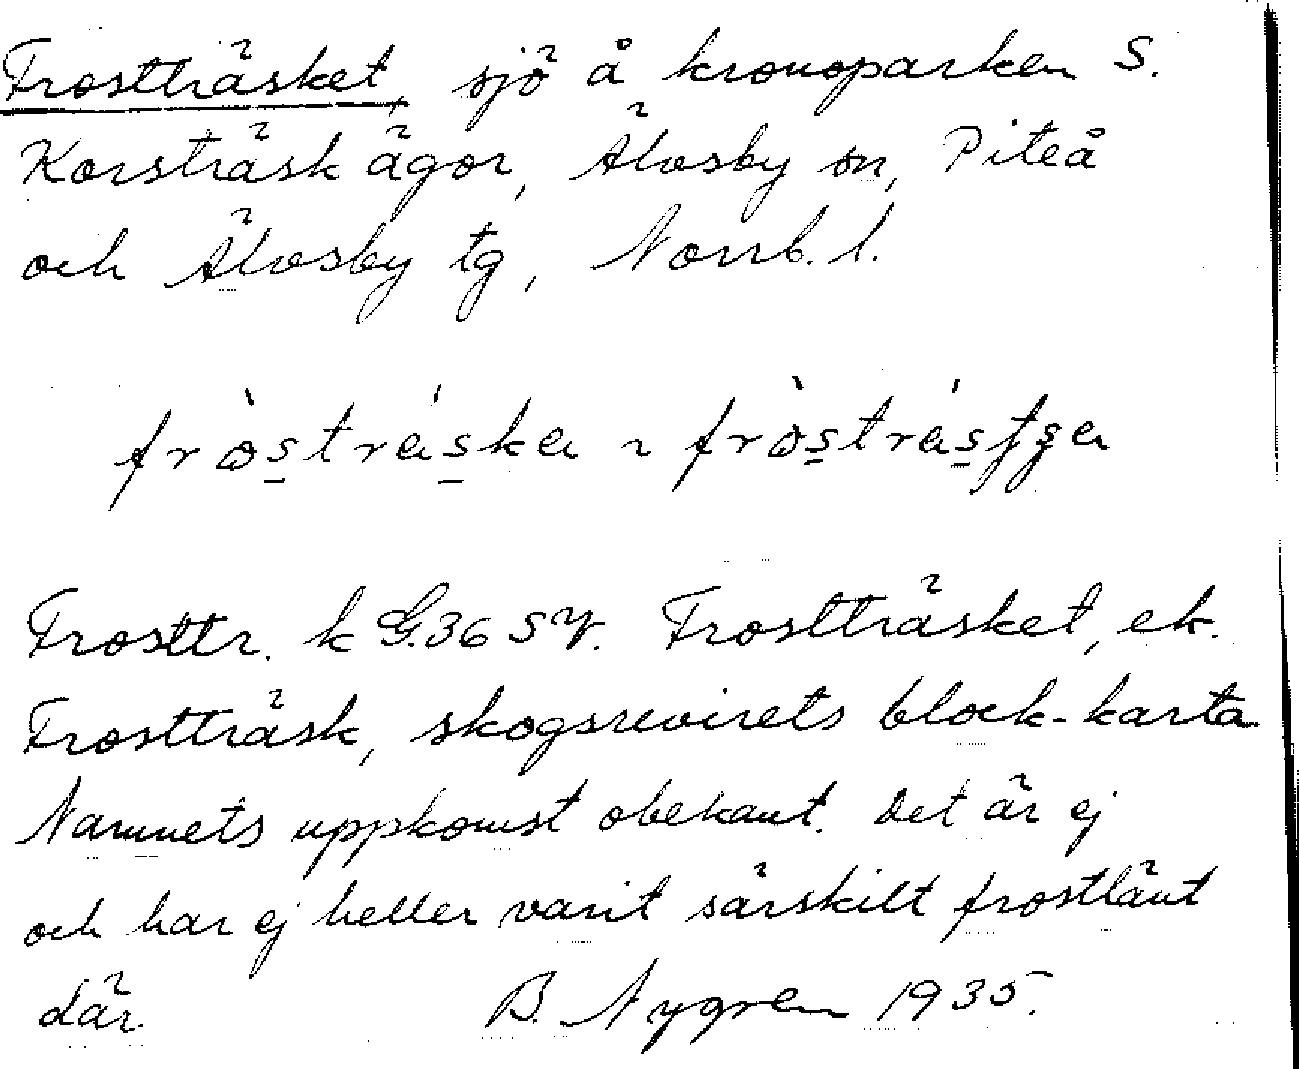 Frostträsket, sjö å kronoparken S.
Korsträsk ägor, Älvsby sn, Piteå
och Älvsby tg, Norrb. l.
Frosttr. k G.36 SV. Frostträsket, ek.
Frostträsk, skogsrevirets block-karta
Namnets uppkomst obekant. Det är ej
och har ej heller varit särskilt frostlänt
där. B. Nygren 1935.